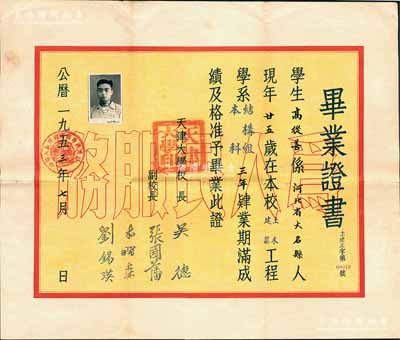 畢業證書
土建正字第 號
學生高從善係河北省大名縣人
現年廿五歲在本校土木建築工程
學系結構組本科三年肄業期滿成
績及格准予畢業此證
天津大學校長 吳德
副校長 張國藩
劉錫瑛
公曆一九五三年七月 日
為人民服務